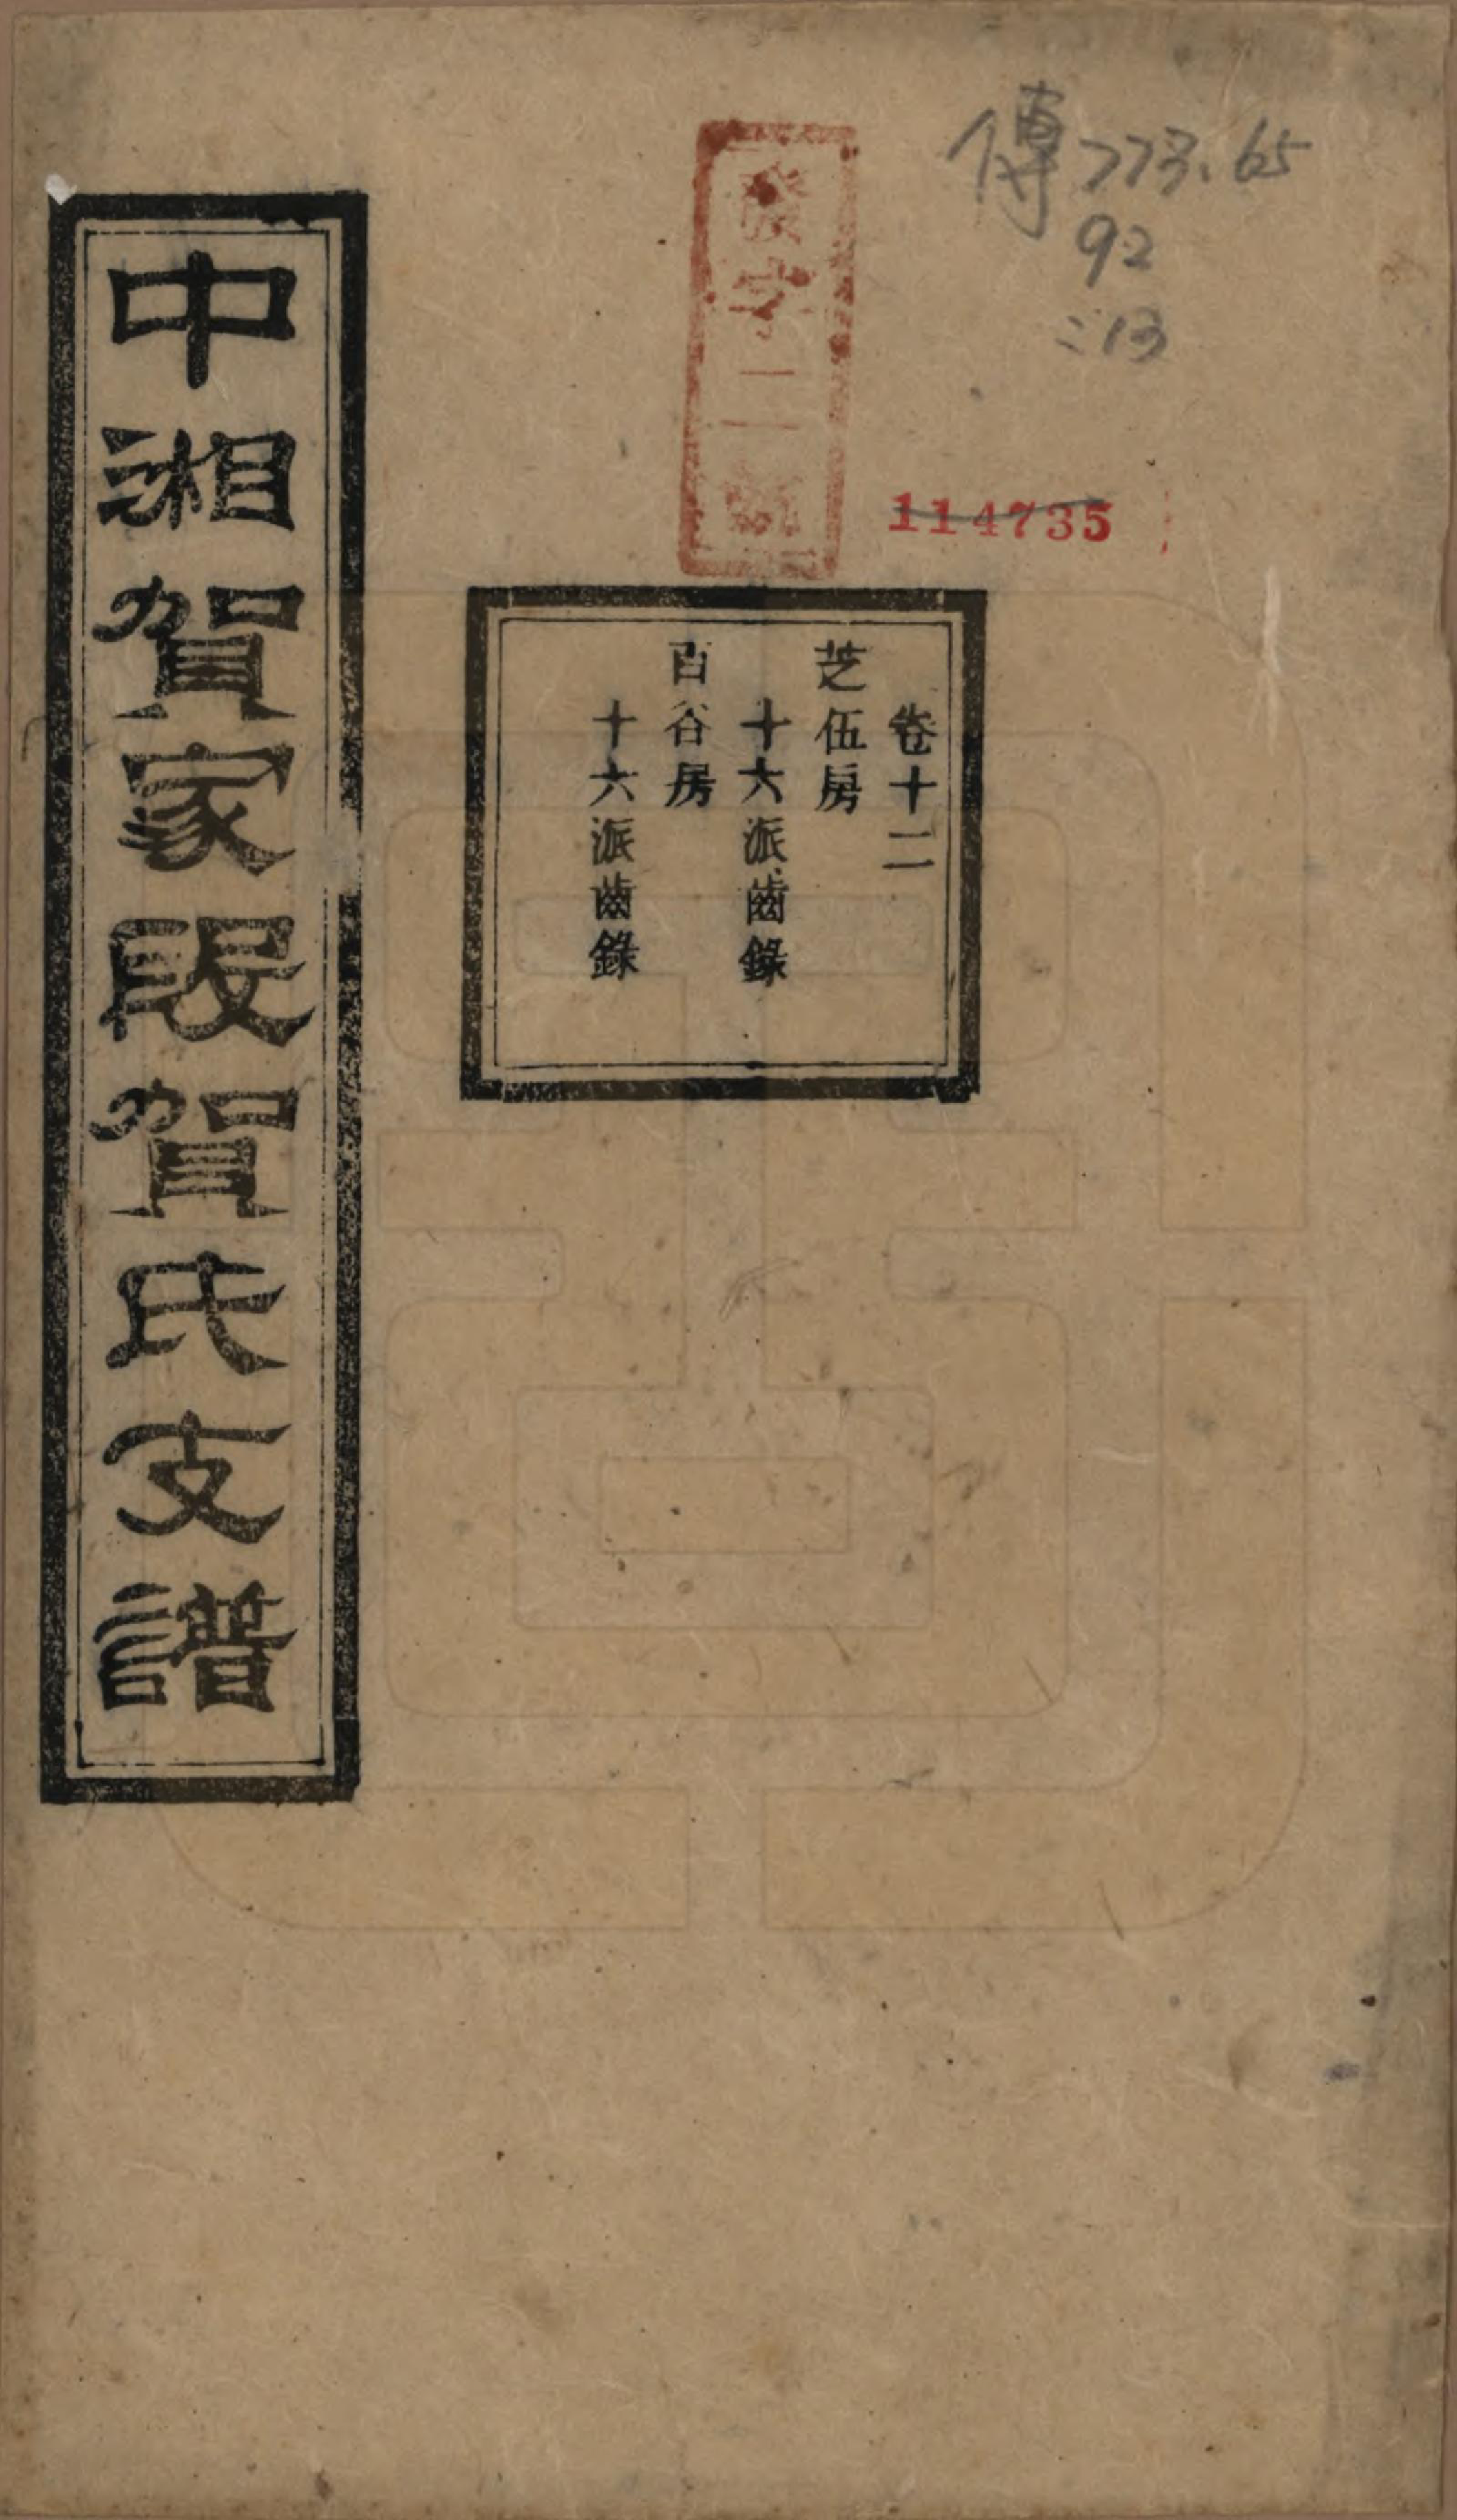 傳773.65
92
:13
114735
發字二號
卷十二
芝伍房
十六派齒錄
百谷房
十六派齒錄
中湘賀家段賀氏支譜